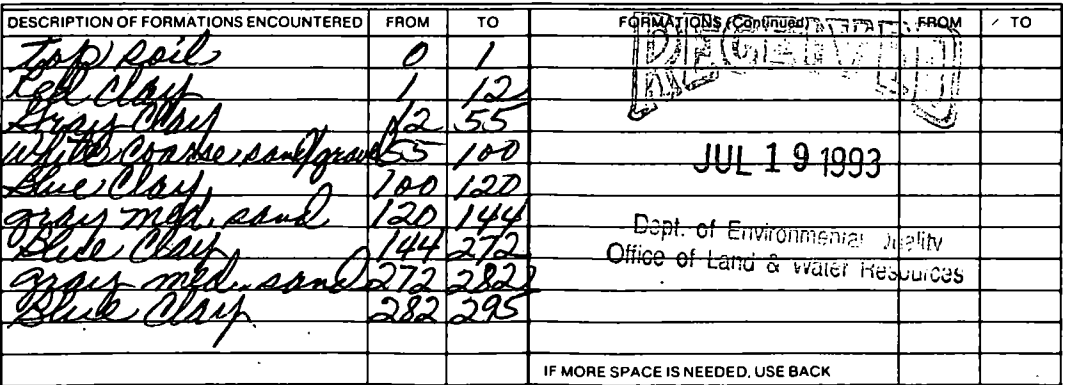 DESCRIPTION OF FORMATIONS ENCOUNTERED FROM TO FORMATIONS (Continued) FROM TO
top soil 0 1
Red Clay 1 12
Gray Clay 12 55
White Coarse, sand/gravel 55 100
Blue Clay 100 120
gray med. sand 120 144
Blue Clay 144 272
gray med. sand 272 282
Blue Clay 282 295
RECEIVED
JUL 19 1993
Dept. of Environmental Quality
Office of Land & Water Resources
IF MORE SPACE IS NEEDED, USE BACK